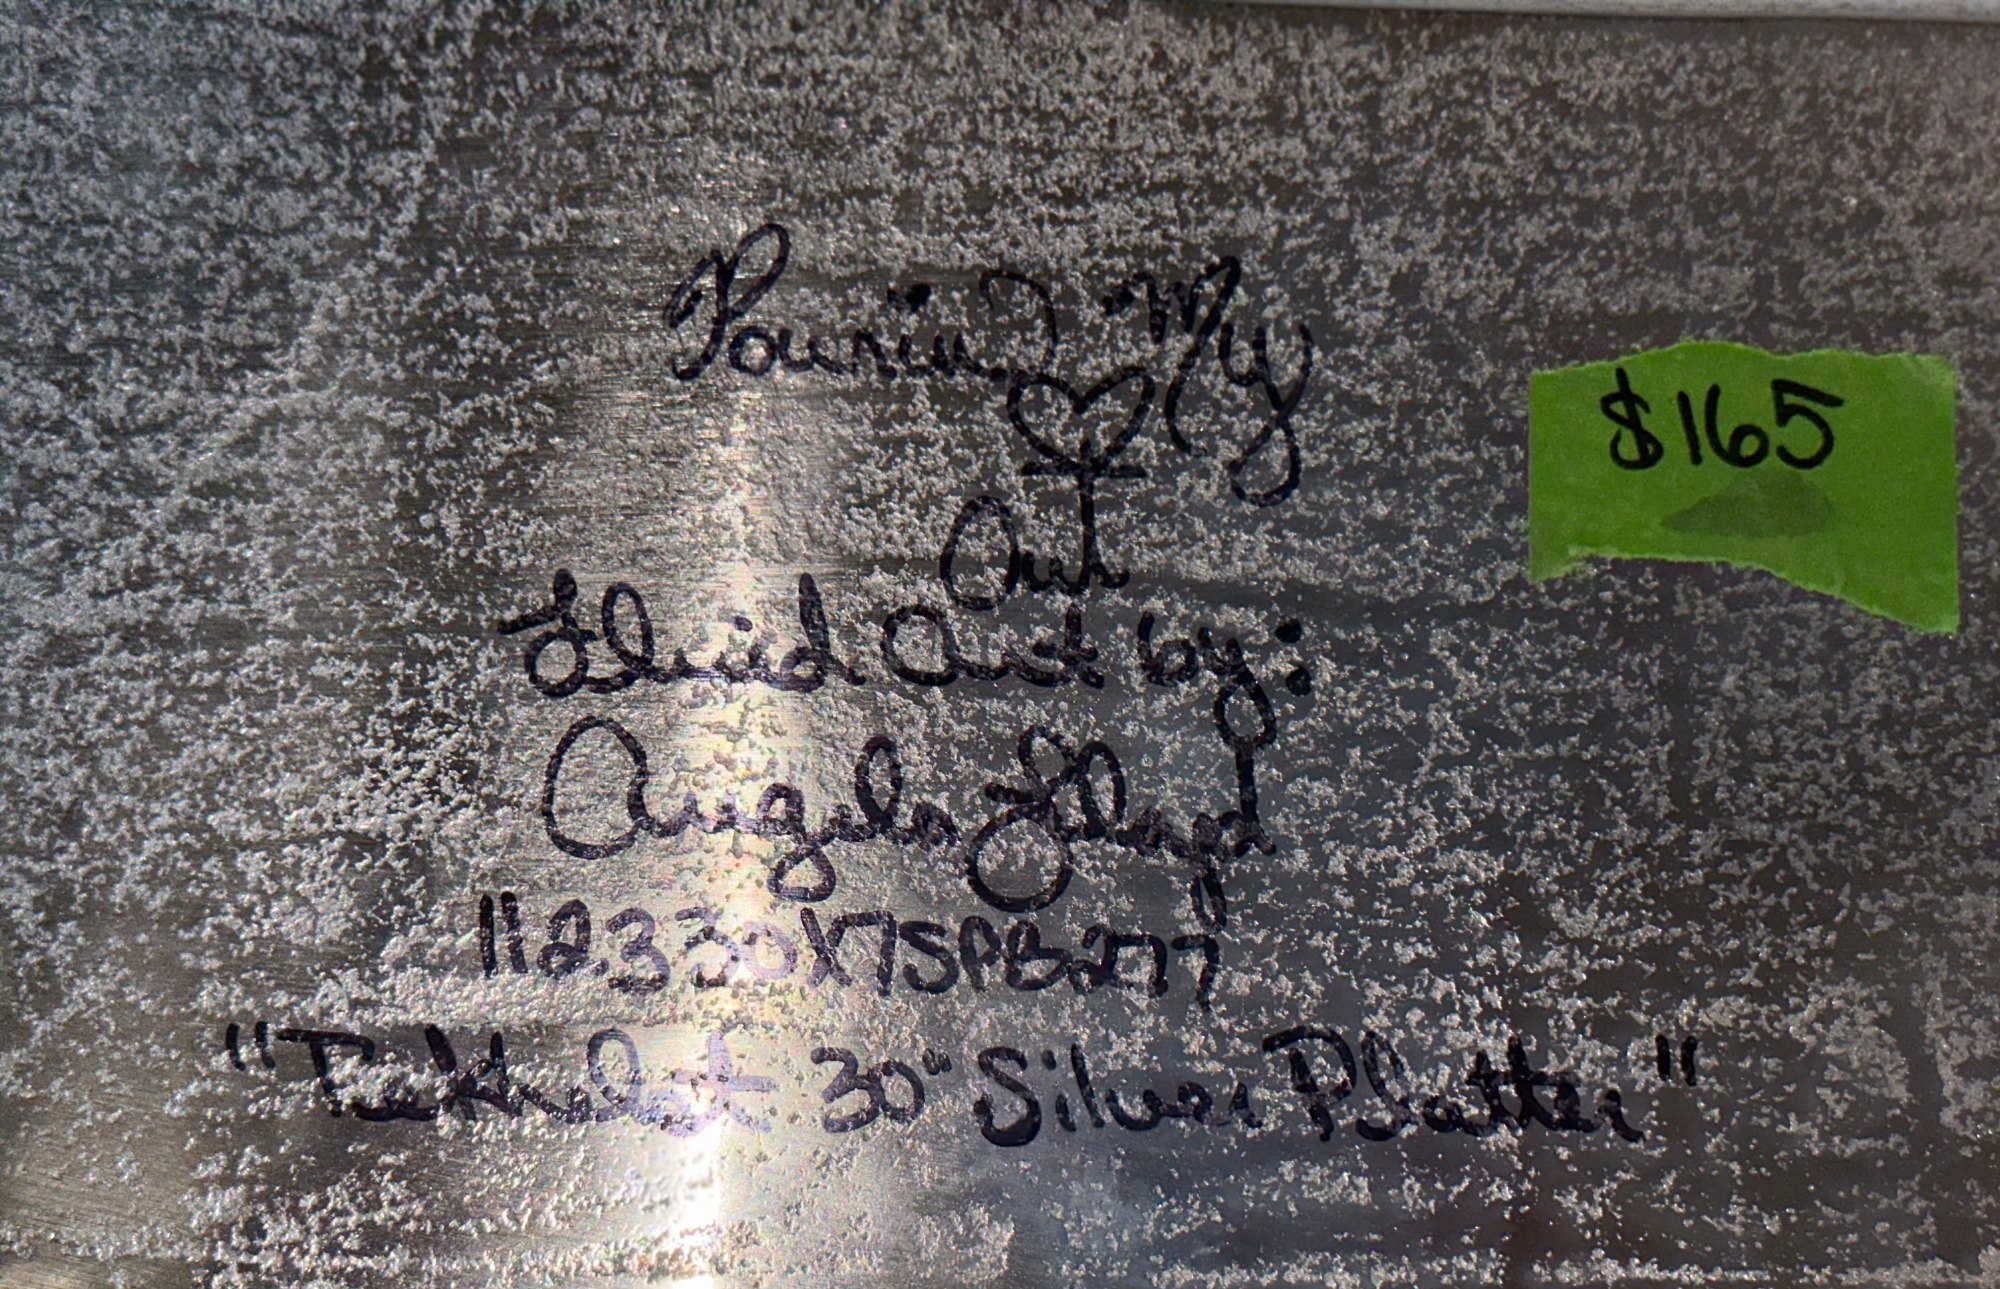 Pourin' My
♡
Out
Fluid Art by:
Angela Floyd
112330X75PB277
"Tekhelet 30" Silver Platter"
$165